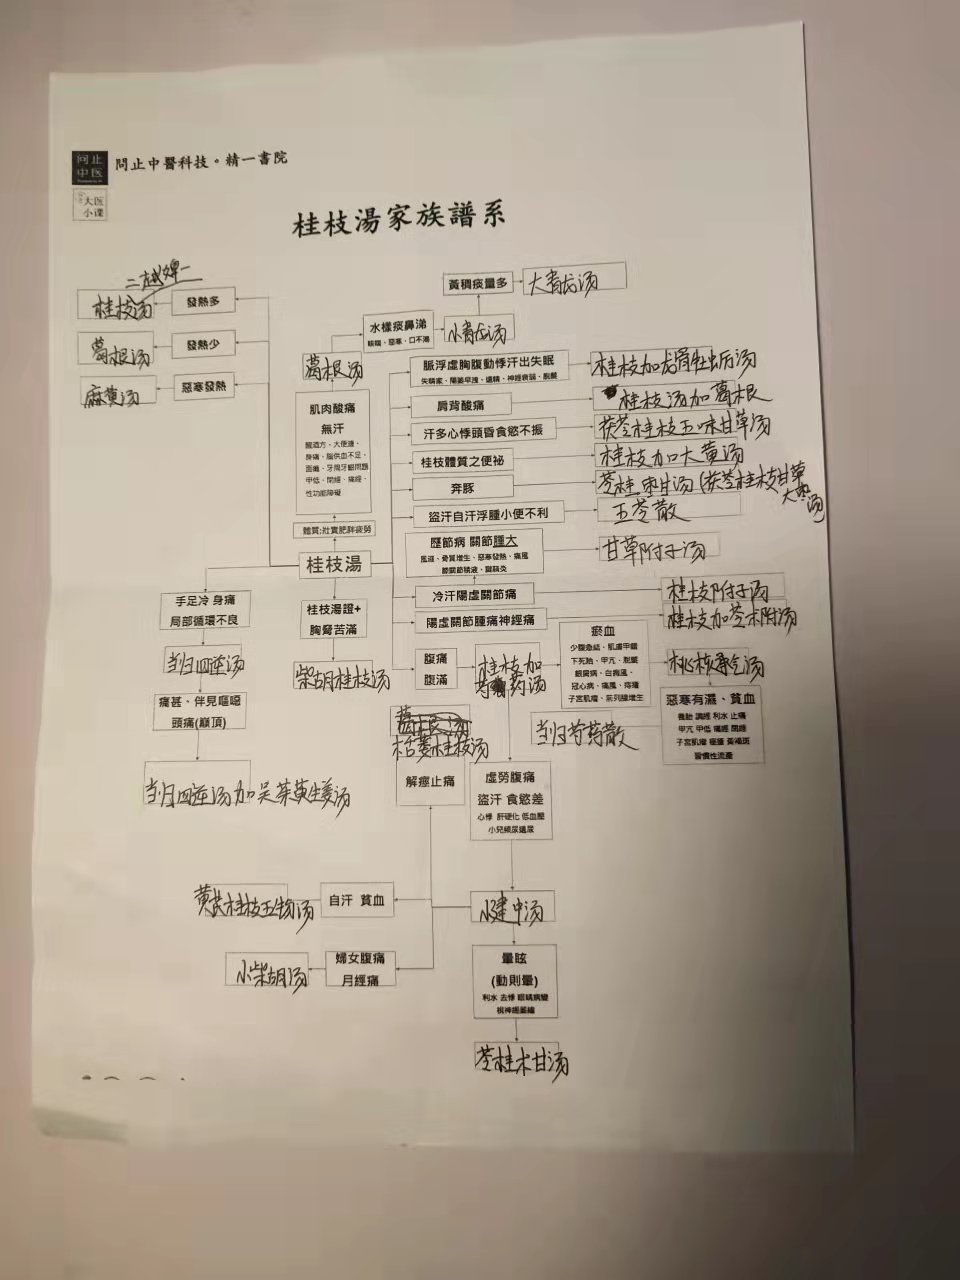 问止
中医
大医
小课
問止中醫科技。精一書院
桂枝湯家族譜系
二越婢一
桂枝汤
發熱多
葛根汤
發熱少
麻黄汤
惡寒發熱
黃稠痰量多
大青龙汤
水樣痰鼻涕
咳喘、惡寒、口不渴
小青龙汤
葛根汤
肌肉酸痛
無汗
身痛、腦供血不足、
面癱、牙周牙齦問題
甲低、閉經、痛經、
性功能障礙
體質:壯實肥胖疲勞
桂枝湯
脈浮虛胸腹動悸汗出失眠
失精家、陽萎早洩、遺精、神經衰弱、脫髮
桂枝加龙骨牡蛎汤
肩背酸痛
桂枝汤加葛根
汗多心悸頭昏食慾不振
茯苓桂枝五味甘草汤
桂枝體質之便祕
桂枝加大黄汤
奔豚
苓桂枣甘汤(茯苓桂枝甘草
大枣汤
盜汗自汗浮腫小便不利
五苓散
歷節病 關節腫大
風濕、骨質增生、惡寒發熱、痛風
膝關節積液、腱鞘炎
甘草附子汤
冷汗陽虛關節痛
桂枝附子汤
陽虛關節腫痛神經痛
桂枝加苓术附汤
手足冷 身痛
局部循環不良
当归四逆汤
痛甚、伴見嘔噁
頭痛(巔頂)
当归四逆汤加吴茱萸生姜汤
桂枝湯證+
胸脅苦滿
柴胡桂枝汤
腹痛
腹滿
桂枝加
芍药汤
瘀血
少腹急結、肌膚甲錯
下死胎、甲亢、脫髮
眼腐病、白癜風、
冠心病、痛風、痔瘡
子宮肌瘤、前列腺增生
桃核承气汤
惡寒有濕、貧血
養胎 調經 利水 止痛
甲亢 甲低 痛經 閉經
子宮肌瘤 痤瘡 黃褐斑
習慣性流產
当归芍药散
葛根汤
栝蒌桂枝汤
解痙止痛
虛勞腹痛
盜汗 食慾差
心悸 肝硬化 低血壓
小兒頻尿遺尿
黄芪桂枝五物汤
自汗 貧血
小建中汤
小柴胡汤
婦女腹痛
月經痛
暈眩
(動則暈)
利水 去悸 眼睛病變
視神經萎縮
苓桂术甘汤